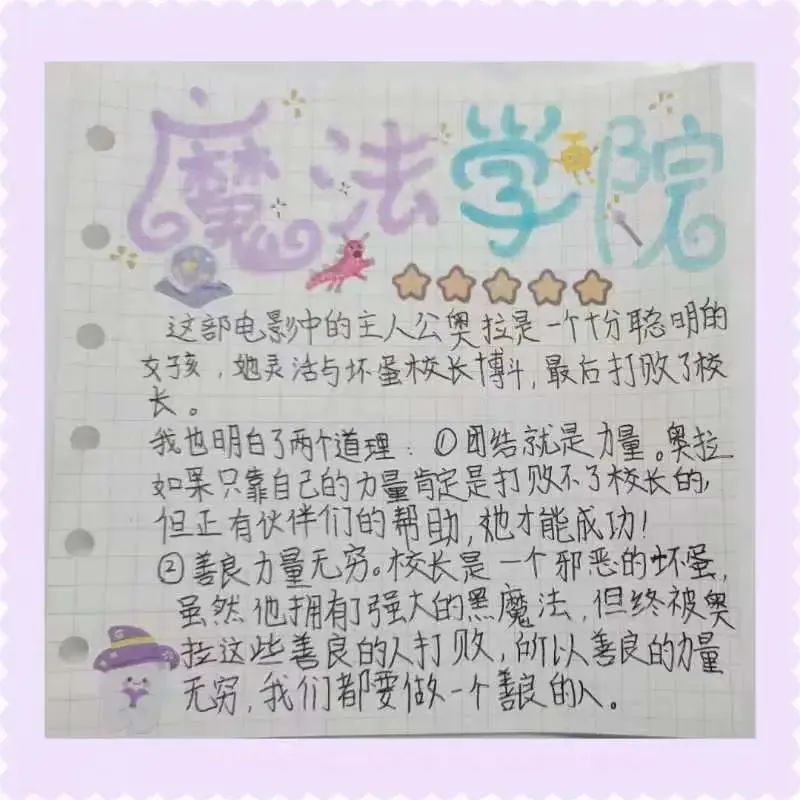 魔法学院
这部电影中的主人公奥拉是一个十分聪明的
女孩，她灵活与坏蛋校长博斗，最后打败了校
长。
我也明白了两个道理：①团结就是力量。奥拉
如果只靠自己的力量肯定是打败不了校长的，
但正有伙伴们的帮助，她才能成功！
②善良力量无穷。校长是一个邪恶的坏蛋，
虽然他拥有了强大的黑魔法，但终被奥
拉这些善良的人打败，所以善良的力量
无穷，我们都要做一个善良的人。